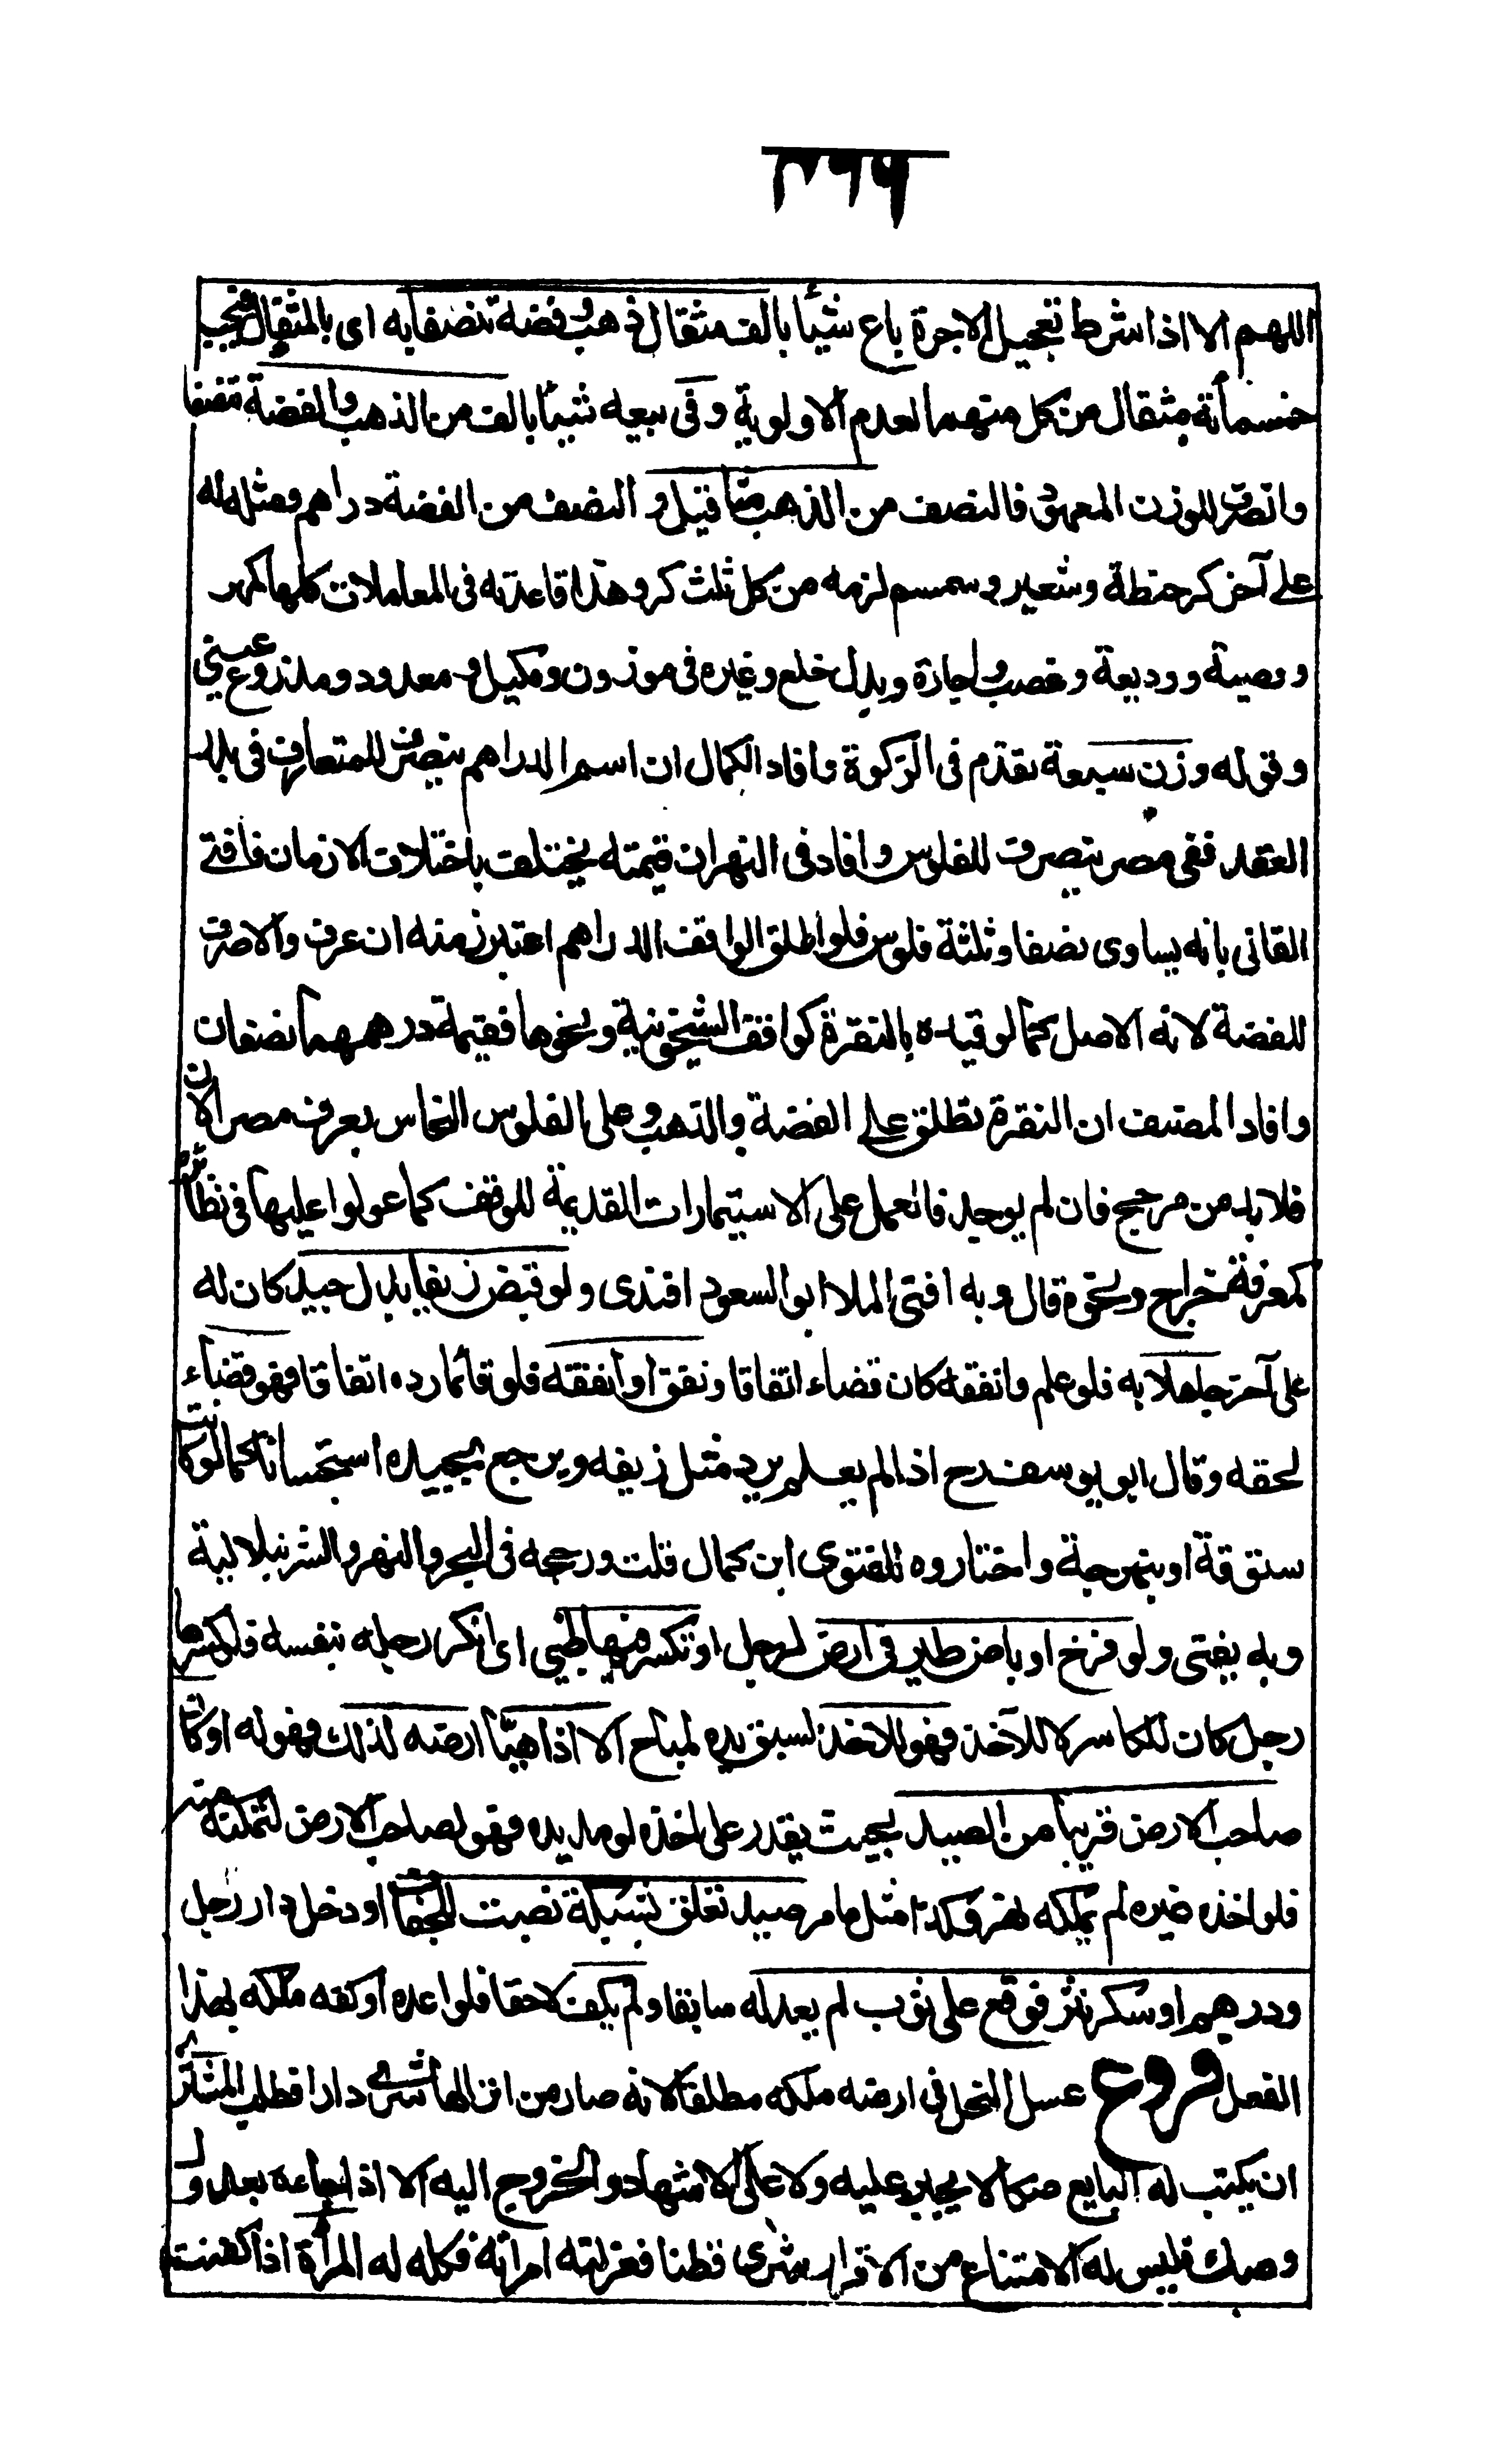 اللهم الا اذا شرط تعجيل الاجرة باع شيأ بالف مثقال ذهب وفضة تنصفا به اى بالمثقال فيجب
خمسمأة مثقال من كل منهما لعدم الاولوية وفى بيعه شيأ بالف من الذهب والفضة تنصفا
وانصرف للوزن المعهود فالنصف من الذهب مثاقيل والنصف من الفضة دراهم ومثله له
على آخر كر حنطة وشعير وسمسم لزمه من كل ثلث كر وهذا قاعدته فى المعاملات كلها كمهر
ووصية ووديعة وغصب واجارة وبدل خلع وغيره فى موزون ومكيل ومعدود ومذروع عينى
وقوله وزن سبعة تقدم فى الزكوة وافاد الكمال ان اسم الدراهم ينصرف للمتعارف فى بلد
العقد ففى مصر ينصرف للفلوس وافاد فى النهر ان قيمته يختلف باختلاف الازمان فافتى
القانى بانه يساوى نصفا وثلثة فلوس فلو اطلق الواقف الدراهم اعتبر زمنه ان عرف والا صرف
للفضة لانه الاصل كما لو قيده بالنقرة كواقف الشيخونية ونحوها فقيمة درهمهما نصفان
وافاد المصنف ان النقرة تطلق على الفضة والذهب وعلى الفلوس النحاس بعرف مصر الان
فلا بد من مرجح فان لم يوجد فالعمل على الاستيمارات القديمة للوقف كما عولوا عليها فى نظائره
كمعرفة خراج ونحوه قال وبه افتى الملا ابو السعود افندى ولو قبض زيفا بدل جيد كان له
على آخر جاهلا به فلو علم وانفقه كان قضاء اتفاقا ونفق او انفقه فلو قائما رده اتفاقا فهو قضاء
لحقه وقال ابو يوسف رح اذا لم يعلم يرد مثل زيفه ويرجع بجيده استحسانا كما لو كانت
ستوقة او بنهرجة واختاروه للفتوى ابن كمال قلت ورجحه فى البحر والنهر والشرنبلالية
وبه يفتى ولو فرخ او باض طير فى ارض لرجل او تكسر فيها ظبى اى انكسر رجله بنفسه فلو كسرها
رجل كان للكاسر لا للآخذ فهو للاخذ لسبق يده لمباح الا اذا هيأ ارضه لذلك فهو له او كان
صاحب الارض قريبا من الصيد بحيث يقدر على اخذه لو مد يده فهو لصاحب الارض لتمكنه منه
فلو اخذه غيره لم يملكه نهر وكذا مثل ما مر صيد تعلق بشبكة نصبت للجفاف او دخل دار رجل
ودرهم او سكر نثر فوقع على ثوب لم يعد له سابقا ولم يكف لاحقا فلو اعده او كفه ملكه بهذا
الفعل فروع عسل النحل فى ارضه ملكه مطلقا لانه صار من انزالها شرى دارا فطلب المشترى
ان يكتب له البايع صكا لا يجبر عليه ولا على الاشهاد والخروج اليه الا اذا جاءه بعدول
وصك فليس له الامتناع من الاقرار شرى قطنا فغزلته امراته فكله له المرأة اذا كفنت